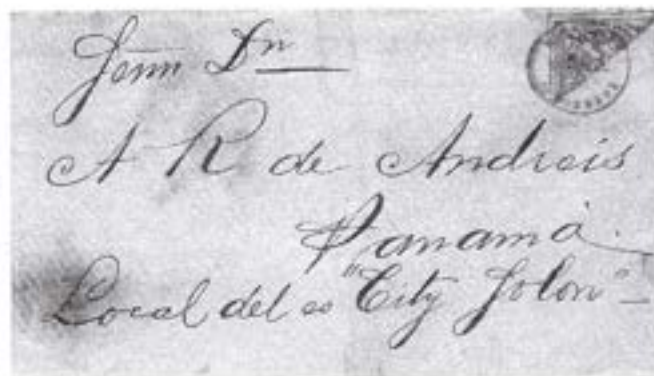 Dn
A R de Andreis
Panamá
Local del es "City Colon"